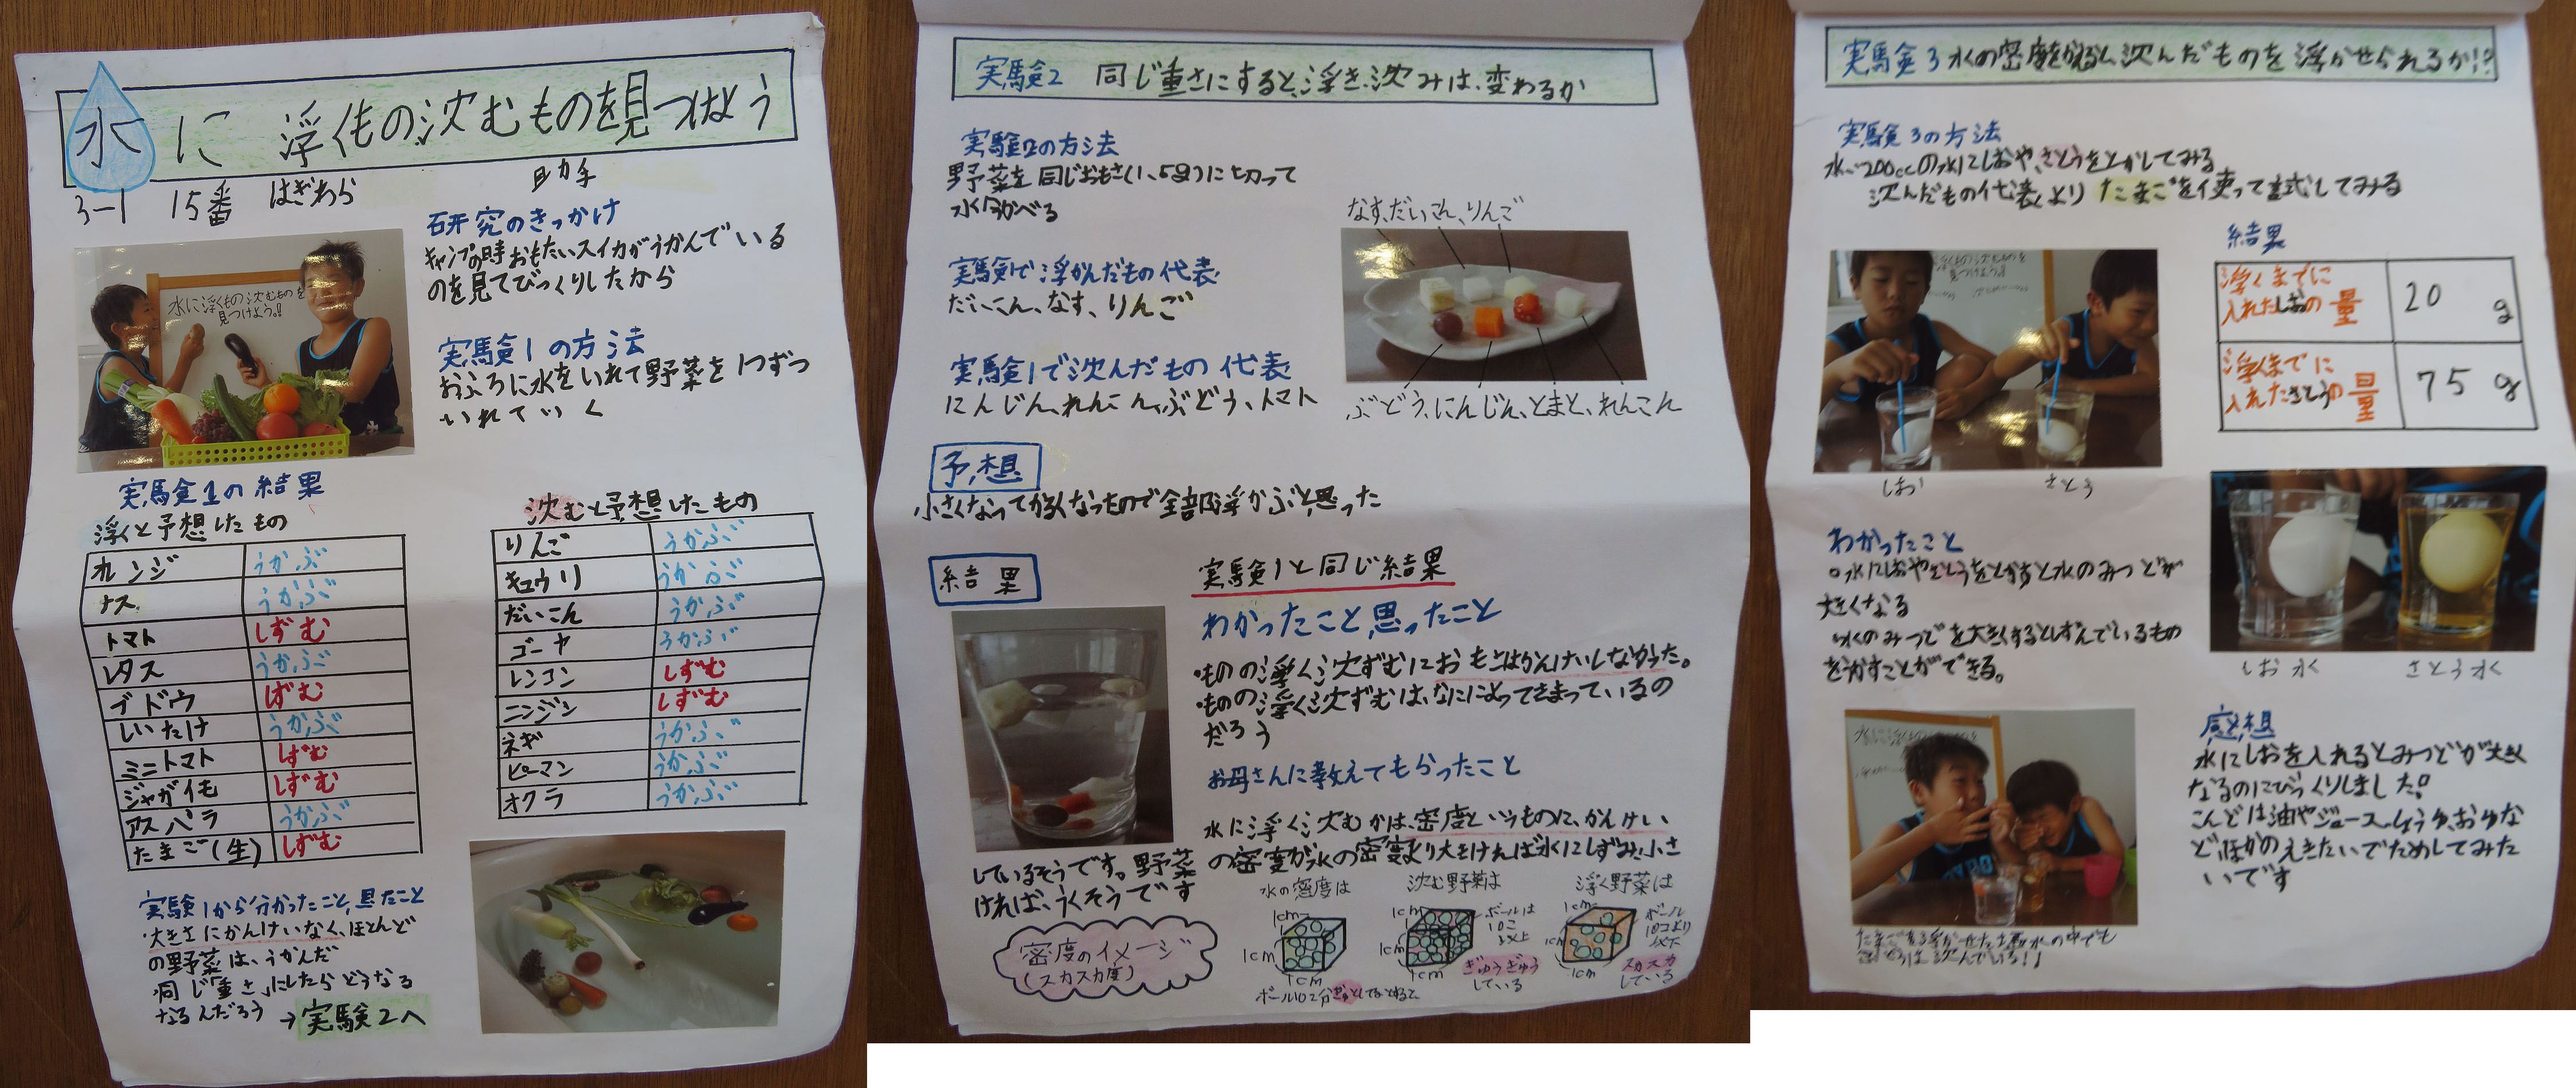 水に 浮くもの沈むものを見つけよう
3-1 15番 はぎわら 助手
研究のきっかけ
キャンプの時おもたいスイカがうかんでいる
のを見てびっくりしたから
水に浮くもの沈むものを
見つけよう!!
実験1の方法
おふろに水をいれて野菜を1つずつ
いれていく
実験1の結果
浮くと予想したもの
オレンジ うかぶ
ナス うかぶ
トマト しずむ
レタス うかぶ
ブドウ しずむ
しいたけ うかぶ
ミニトマト しずむ
ジャガイモ しずむ
アスパラ うかぶ
たまご(生) しずむ
沈むと予想したもの
りんご うかぶ
キュウリ うかぶ
だいこん うかぶ
ゴーヤ うかぶ
レンコン しずむ
ニンジン しずむ
ネギ うかぶ
ピーマン うかぶ
オクラ うかぶ
実験1から分かったこと、思たこと
・大きさにかんけいなく、ほとんど
の野菜は、うかんだ
・同じ「重さ」にしたらどうなる
なるんだろう →実験2へ
実験2 同じ重さにすると、浮き、沈みは、変わるか
実験2の方法
野菜を同じおもさ(1、5g)に切って
水にうかべる
実験1で浮かんだもの代表
だいこん、なす、りんご
実験1で沈んだもの代表
にんじん、れんこん、ぶどう、トマト
なす、だいこん、りんご
ぶどう、にんじん、とまと、れんこん
予想
小さくなってかるくなったもので全部浮かぶと思った
結果
実験1と同じ結果
わかったこと、思ったこと
・ものの浮く沈ずむにおもさはかんけいしなかった。
・ものの浮く沈ずむは、なにによってきまっているの
だろう
お母さんに教えてもらったこと
水に浮く沈むかは、密度というものに、かんけい
しているそうです。野菜の密度が水の密度より大きければ水にしずみ、小さ
ければ、うくそうです
密度のイメージ
(スカスカ度)
水の密度は
1cm
1cm
1cm
沈む野菜は
1cm
1cm
1cm
ボールは
10こ
以上
ぎゅうぎゅう
している
浮く野菜は
1cm
1cm
1cm
ボール
10コより
以下
スカスカ
している
実験3 水の密度をかえると、沈んだものを浮かせられるか!?
実験3の方法
水200ccの水にしおや、さとうをとかしてみる
沈んだもの代表、より たまごを使って試してみる
結果
浮くまでに
入れたしおの量 20 g
浮くまでに
入れたさとうの量 75 g
しお さとう
わかったこと
○水にしおやさとうをとかすと水のみつどが
大きくなる
水のみつどを大きくするとしずんでいるもの
をうかすことができる。
しお水 さとう水
感想
水にしおを入れるとみつどが大きく
なるのにびっくりしました。
こんどは油やジュース、しょうゆ、おゆな
どほかのえきたいでためしてみた
いです